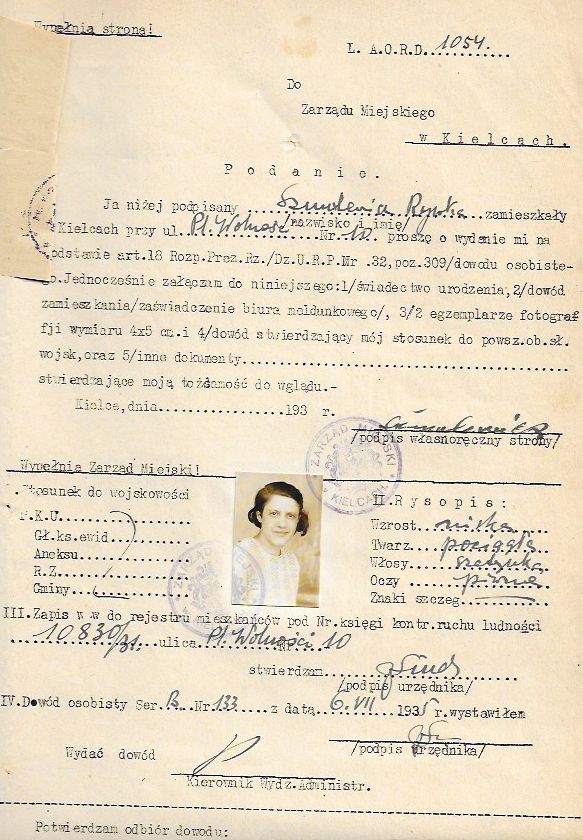 Wypełnia strona!
L. A.O.R.D. 1054.
Do
Zarządu Miejskiego
w Kielcach.
Podanie.
Ja niżej podpisany Szmulewicz Rywka zamieszkały
/nazwisko i imię/
Kielcach przy ul. Pl. Wolności Nr. 10 proszę o wydanie mi na
podstawie art.18 Rozp.Prez.Rz./Dz.U.R.P.Nr .32,poz.309/dowodu osobiste-
go.Jednocześnie załączam do niniejszego:1/świadectwo urodzenia,2/dowód
zamieszkania/zaświadczenie biura meldunkowego/, 3/2 egzemplarze fotograf
fji wymiaru 4x5 cm.i 4/dowód stwierdzający mój stosunek do powsz.ob.sł.
wojsk,oraz 5/inne dokumenty
stwierdzające moją tożdamość do wglądu.-
Kielce,dnia 193 r.
/podpis własnoręczny strony/
ZARZĄD MIEJSKI KIELCACH
Wypełnia Zarząd Miejski!
Stosunek do wojskowości
P.K.U.
Gł.ks.ewid
Aneksu
R.Z.
Gminy
ZARZĄD MIEJSKI
II.Rysopis:
Wzrost niska
Twarz pociągła
Włosy szatynka
Oczy piwne
Znaki szczeg.
III.Zapis w.w do rejestru mieszkańców pod Nr.księgi kontr.ruchu ludności
10830/31 ulica Pl. Wolności Nr 10
stwierdzam
/podpis urzędnika/
IV.Dowód osobisty Ser. B. Nr 133 z datą 6.VII 1935 r.wystawiłem
/podpis urzędnika/
Wydać dowód
Kierownik Wydz.Administr.
Potwierdzam odbiór dowodu: